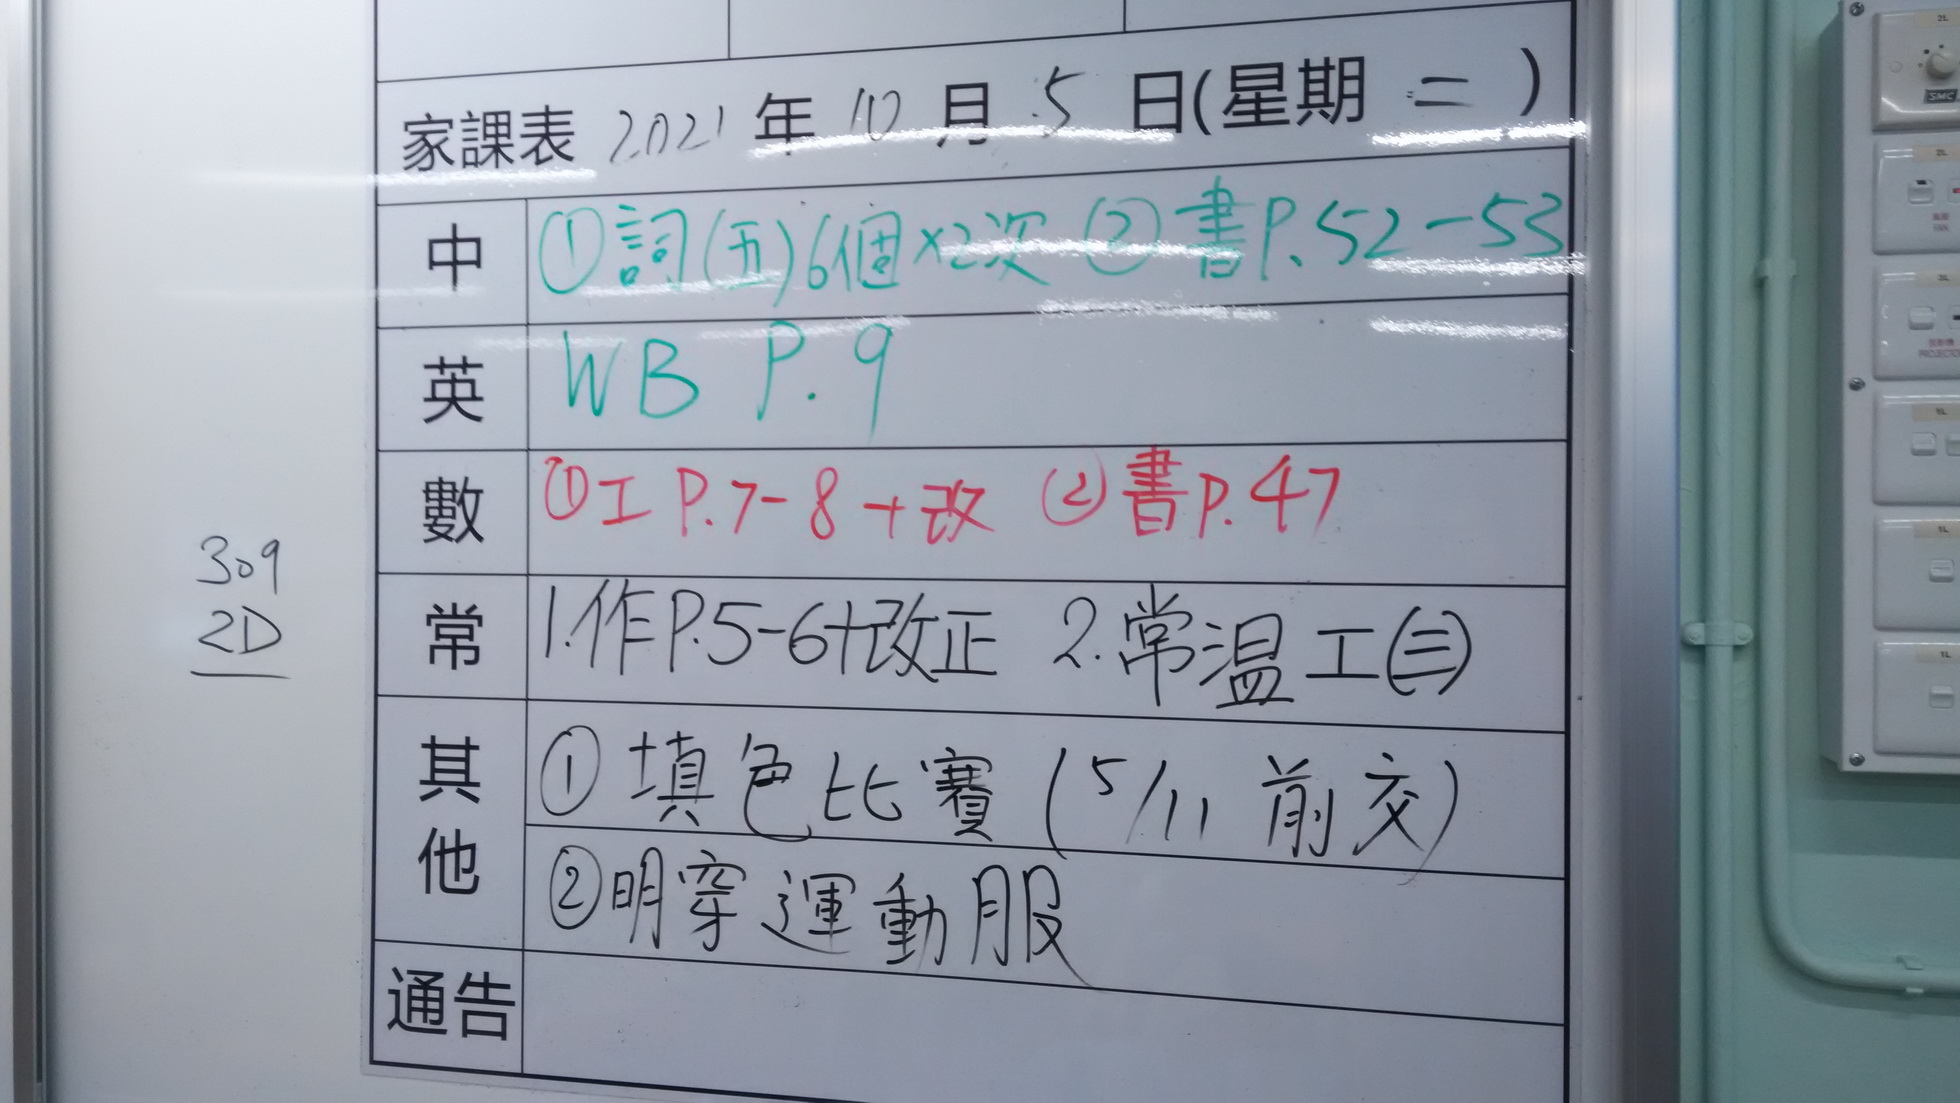 家課表 2021 年 10 月 5 日(星期 二 )
中 ①詞(五)6個×2次 ②書P.52-53
英 WB P.9
數 ①工 P.7-8+改 ②書P.47
常 1.作P.5-6+改正 2.常温工(三)
其他 ①填色比賽(5/11前交)
②明穿運動服
通告
309
2D
SMC
2L
2L
FAN
2L
PROJECTO
1L
1L
1L